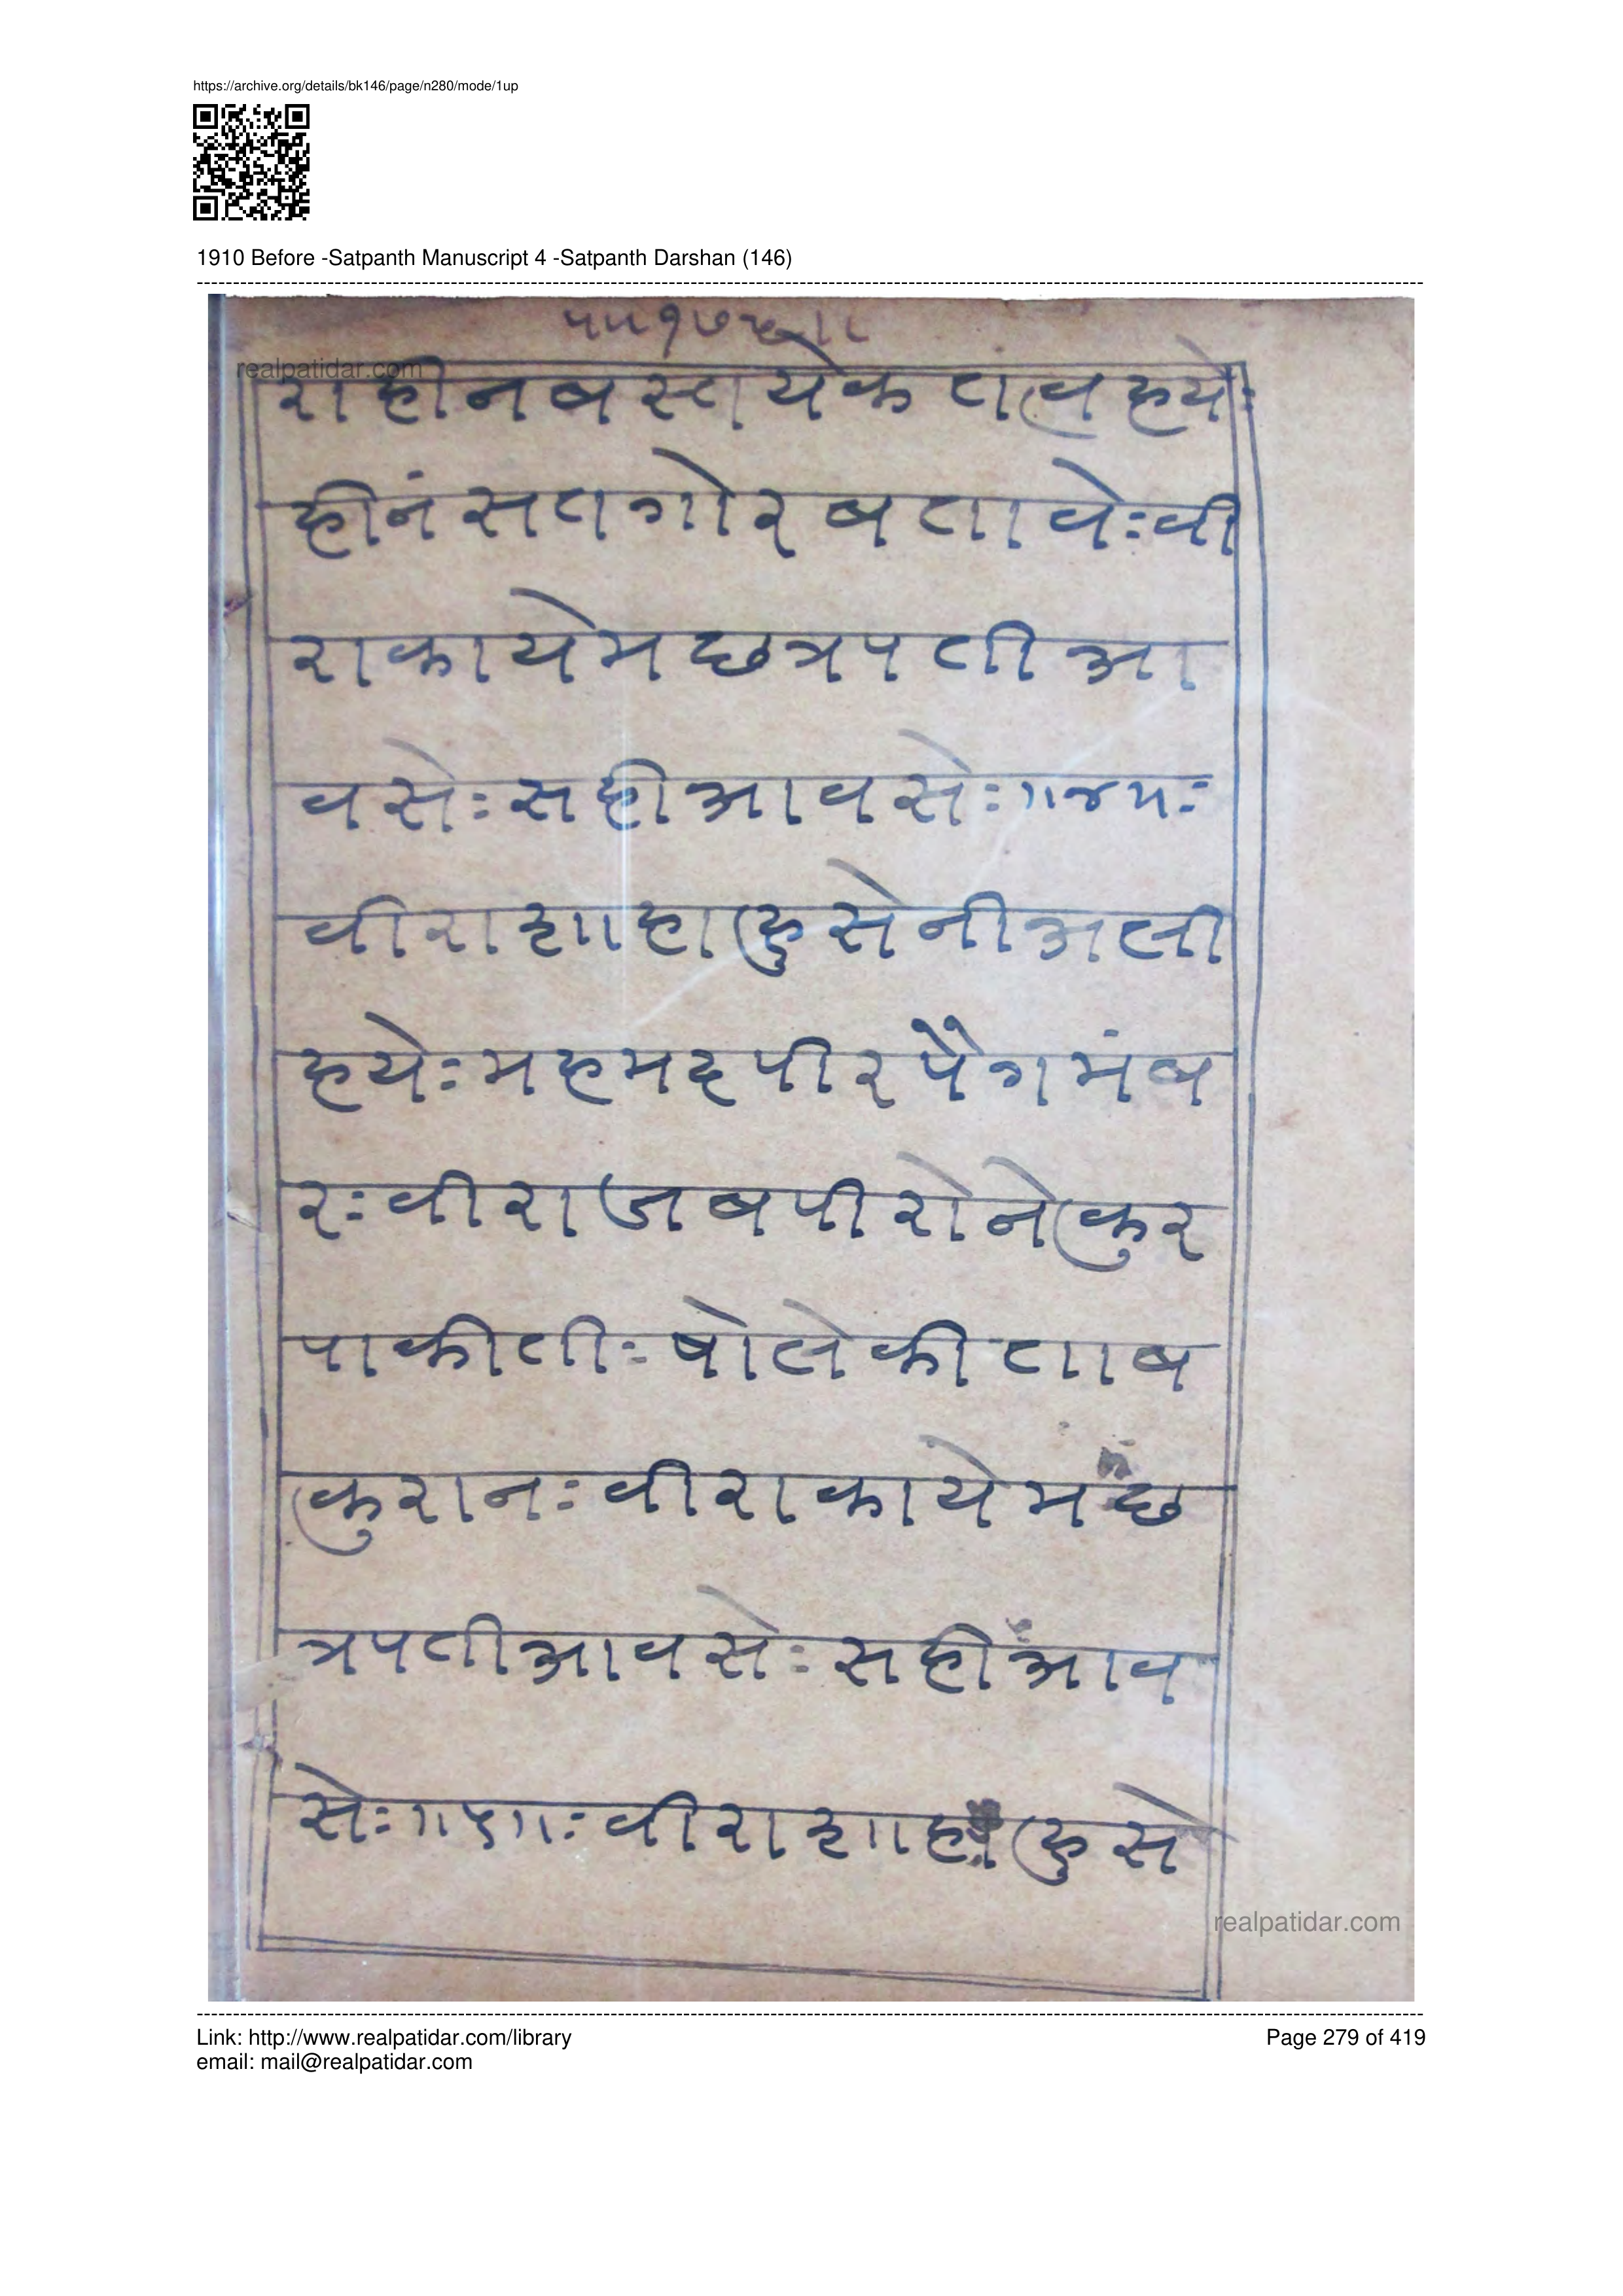 https://archive.org/details/bk146/page/n280/mode/1up
1910 Before -Satpanth Manuscript 4 -Satpanth Darshan (146)
realpatidar.com
राहीनबसतायेक तत्वहये:
हीनं सतगोर बतावे:वी
राकायेमछत्रपतीआ
वसे:सहीआवसे:॥४॥:
वीराशाहाहुसेनीअली
हये:महमदपीरपैगमंब
र:वीराजबपीरोनेकुर
पाकीती:षोलेकीताब
कुरान:वीराकायेमछ
त्रपतीआवसे:सहीआव
से:॥५॥:वीराशाहाहुसे
realpatidar.com
Link: http://www.realpatidar.com/library
Page 279 of 419
email: mail@realpatidar.com